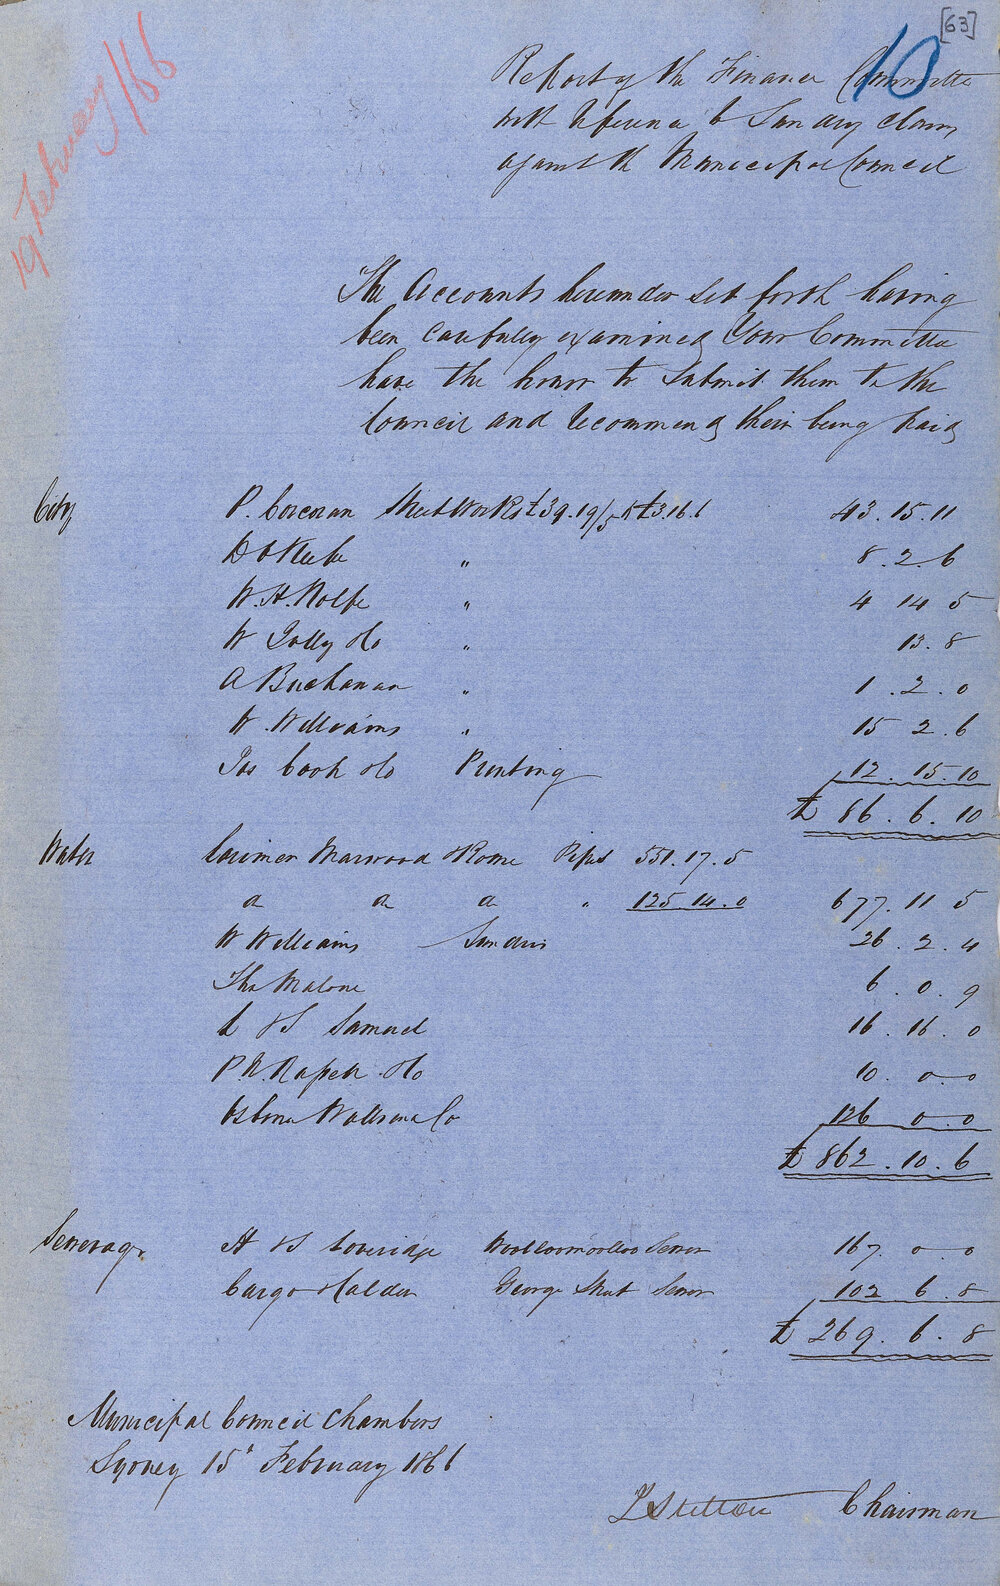 [63]
10
19 February /66
Report of the Finance Committee
with reference to Sundry claims
against the Municipal Council
The Accounts hereunder set forth having
been carefully examined Your Committee
have the honor to submit them to the
Council and recommend their being paid
City P. Corcoran Street Works £39.19/5 & £3.16.6 43.15.11
D O'Keefe " 8.2.6
W. H. Rolfe " 4 14 5
W Jolly & Co " 13.8
A Buchanan " 1.2.0
W. Williams " 15 2.6
Jas Cook & Co Printing 12.15.10
£ 86.6.10
Water Larimer Marwood & Rome Pipes 551.17.5
Do Do Do " 125.14.0 677.11 5
W Williams Sundries 26.2.4
Thos Malone 6.0.9
L & S Samuel 16.16.0
P. N. & Co 10.0.0
Watson & Co 126 0.0
£ 862.10.6
Sewerage H & S Loveridge Woolloomooloo Sewer 167.0.0
Cargo & Calder George Street Sewer 102 6.8
£ 269.6.8
Municipal Council Chambers
Sydney 15th February 1866
Chairman